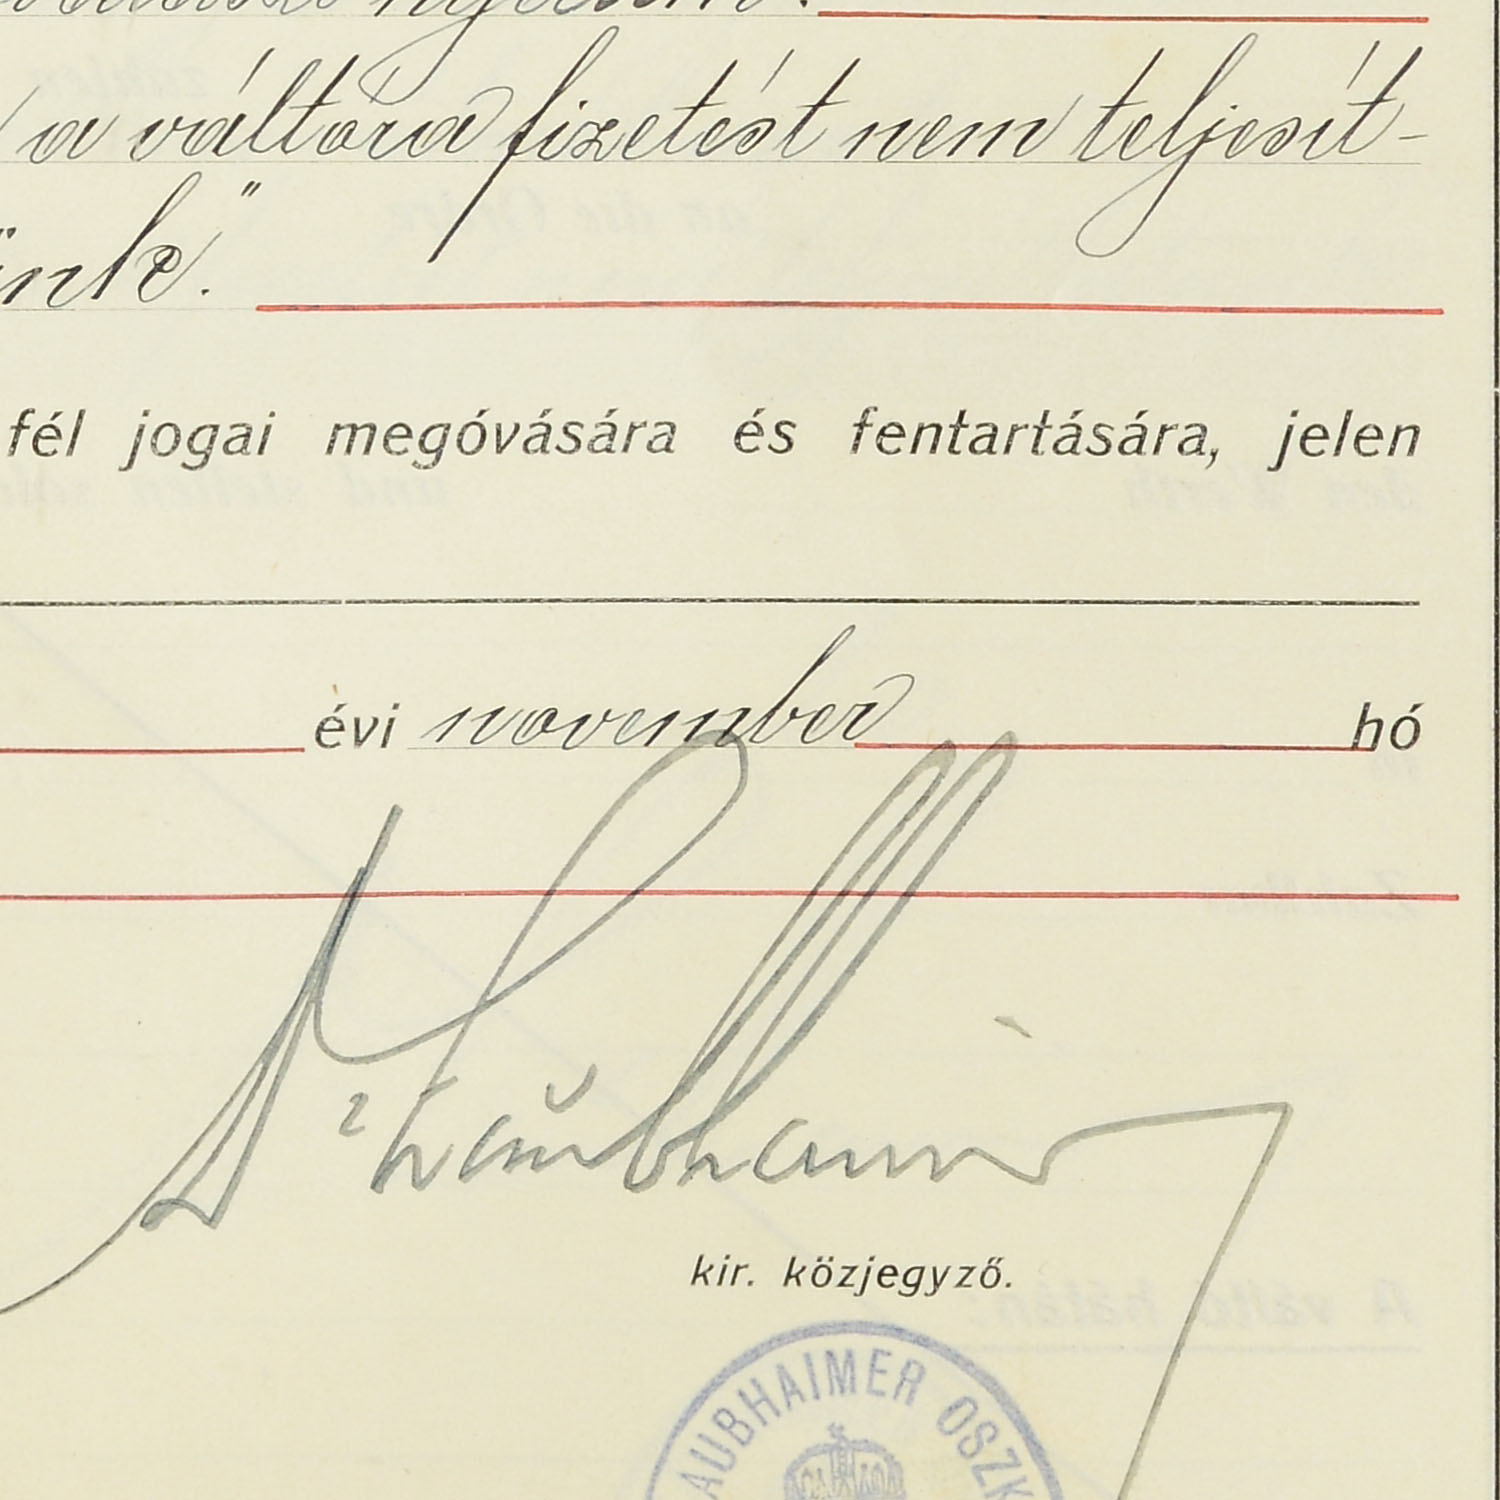 a váltóra fizetést nem teljesít-
ünk."
fél jogai megóvására és fentartására, jelen
évi november hó
kir. közjegyző.
AUBHAIMER OSZK